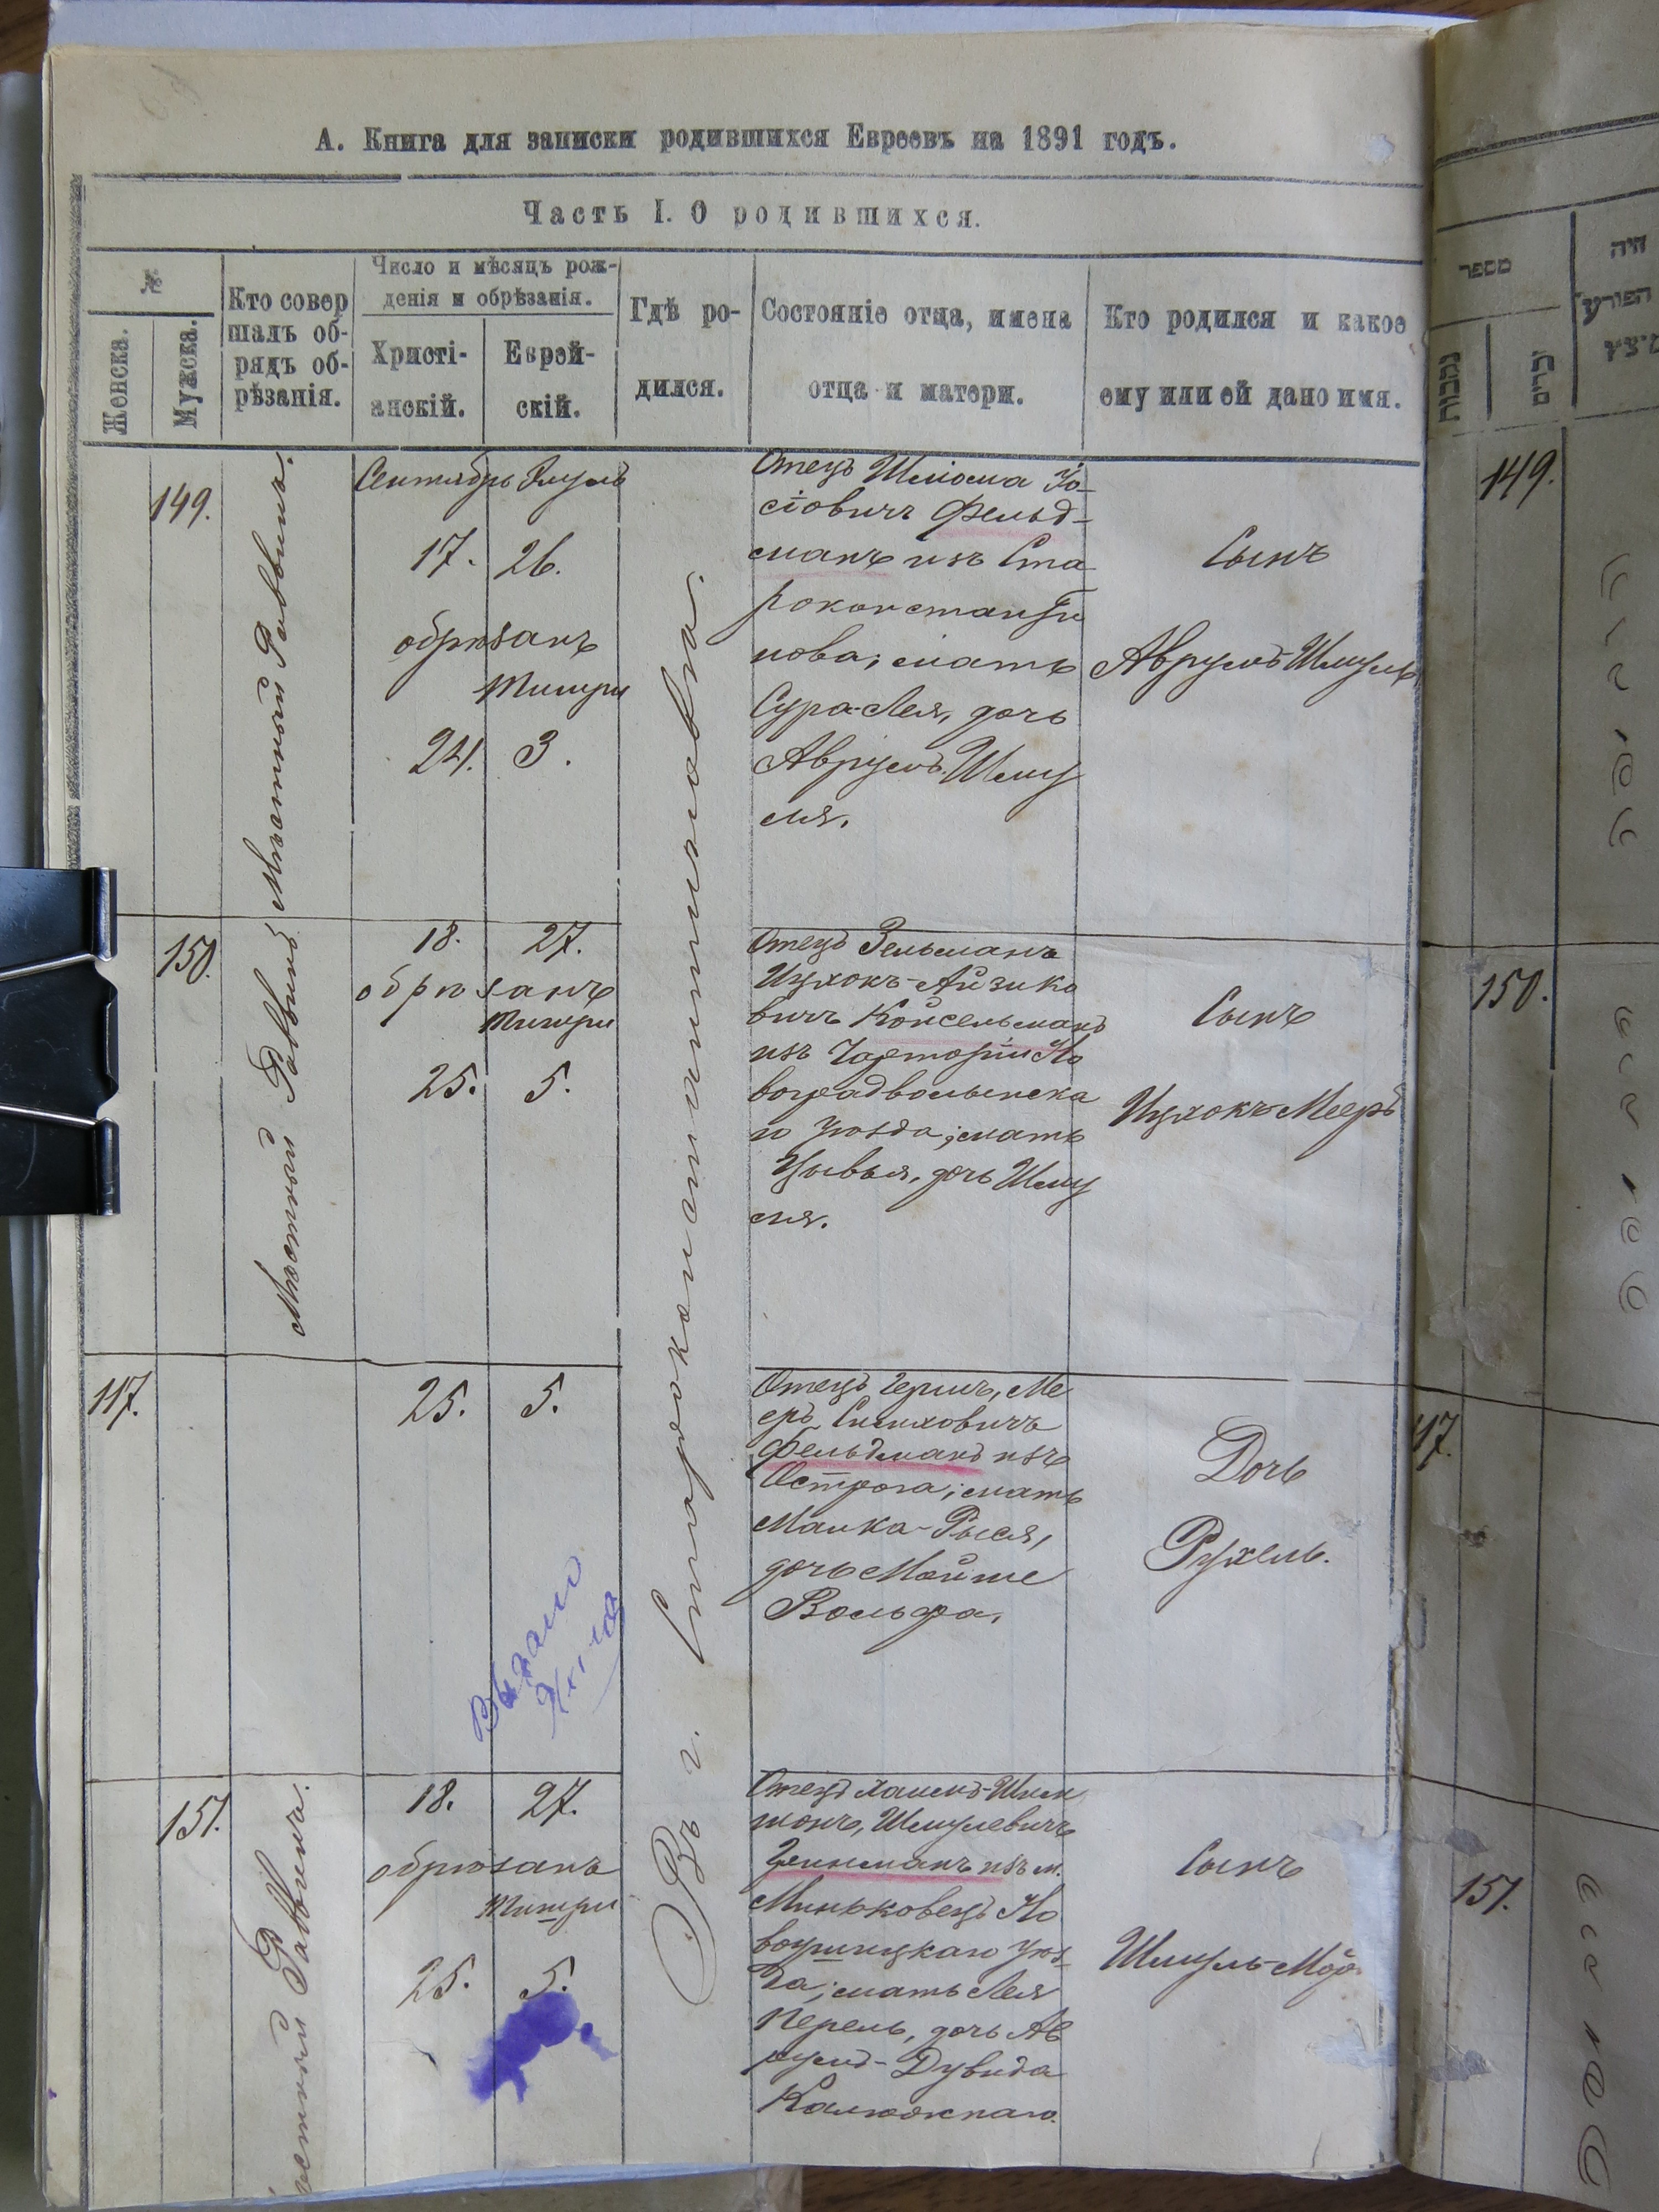 А. Книга для записки родившихся Евреевъ на 1891 годъ.
Часть I. О родившихся.
№
Женска.
Мужска.
Кто совер
шалъ об-
рядъ об-
рѣзанія.
Число и мѣсяцъ рож-
денія и обрѣзанія.
Христі-
анскій.
Еврей-
скій.
Гдѣ ро-
дился.
Состояніе отца, имена
отца и матери.
Кто родился и какое
ему или ей дано имя.
149.
Мѣстный Раввинъ.
Сентябрь Элулъ
17. 26.
обрѣзанъ
Тишри
24. 3.
Въ г. Староконстантиновѣ.
Отецъ Шліома Іо-
сіовичъ Фельд-
манъ изъ Ста
роконстанти
нова; мать
Сура-Лея, дочь
Аврумъ Шму
ля.
Сынъ
Аврумъ-Шмуль
150.
Мѣстный Раввинъ
18. 27.
обрѣзанъ
Тишри
25. 5.
Отецъ Зельманъ
Ицхокъ-Айзико
вичъ Койсельманъ
изъ Чарторіи Но
воградволынска
го уѣзда; мать
Цывья, дочь Шму
ля.
Сынъ
Ицхокъ-Мееръ
117.
25. 5.
Выдано
Отецъ Гершъ, Ме
еръ Симховичъ
Фельдманъ изъ
Острога; мать
Малка-Рыся,
дочь Мойше
Вольфа.
Дочь
Рухель.
151.
Мѣстный Раввинъ.
18. 27.
обрѣзанъ
Тишри
25. 5.
Отецъ Хаимъ-Шим
шонъ, Шмулевичъ
изъ м.
Миньковецъ Но
воушицкаго уѣз-
да; мать Лея
Перель, дочь Ав
румъ-Дувида
Калюжнаго.
Сынъ
Шмуль-Мор
מספר
נקבות
זכרים
149.
150.
117.
151.